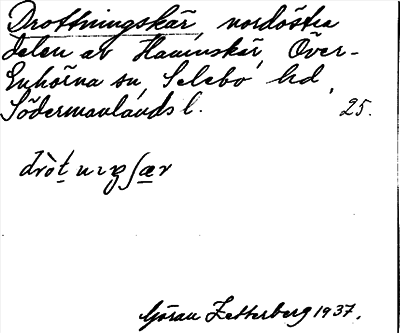 Drottningskär, nordöstra
delen av Hamnskär, Över-
Enhörna sn, Selebo hd,
Södermanlands l. 25.
Göran Zetterberg 1937.